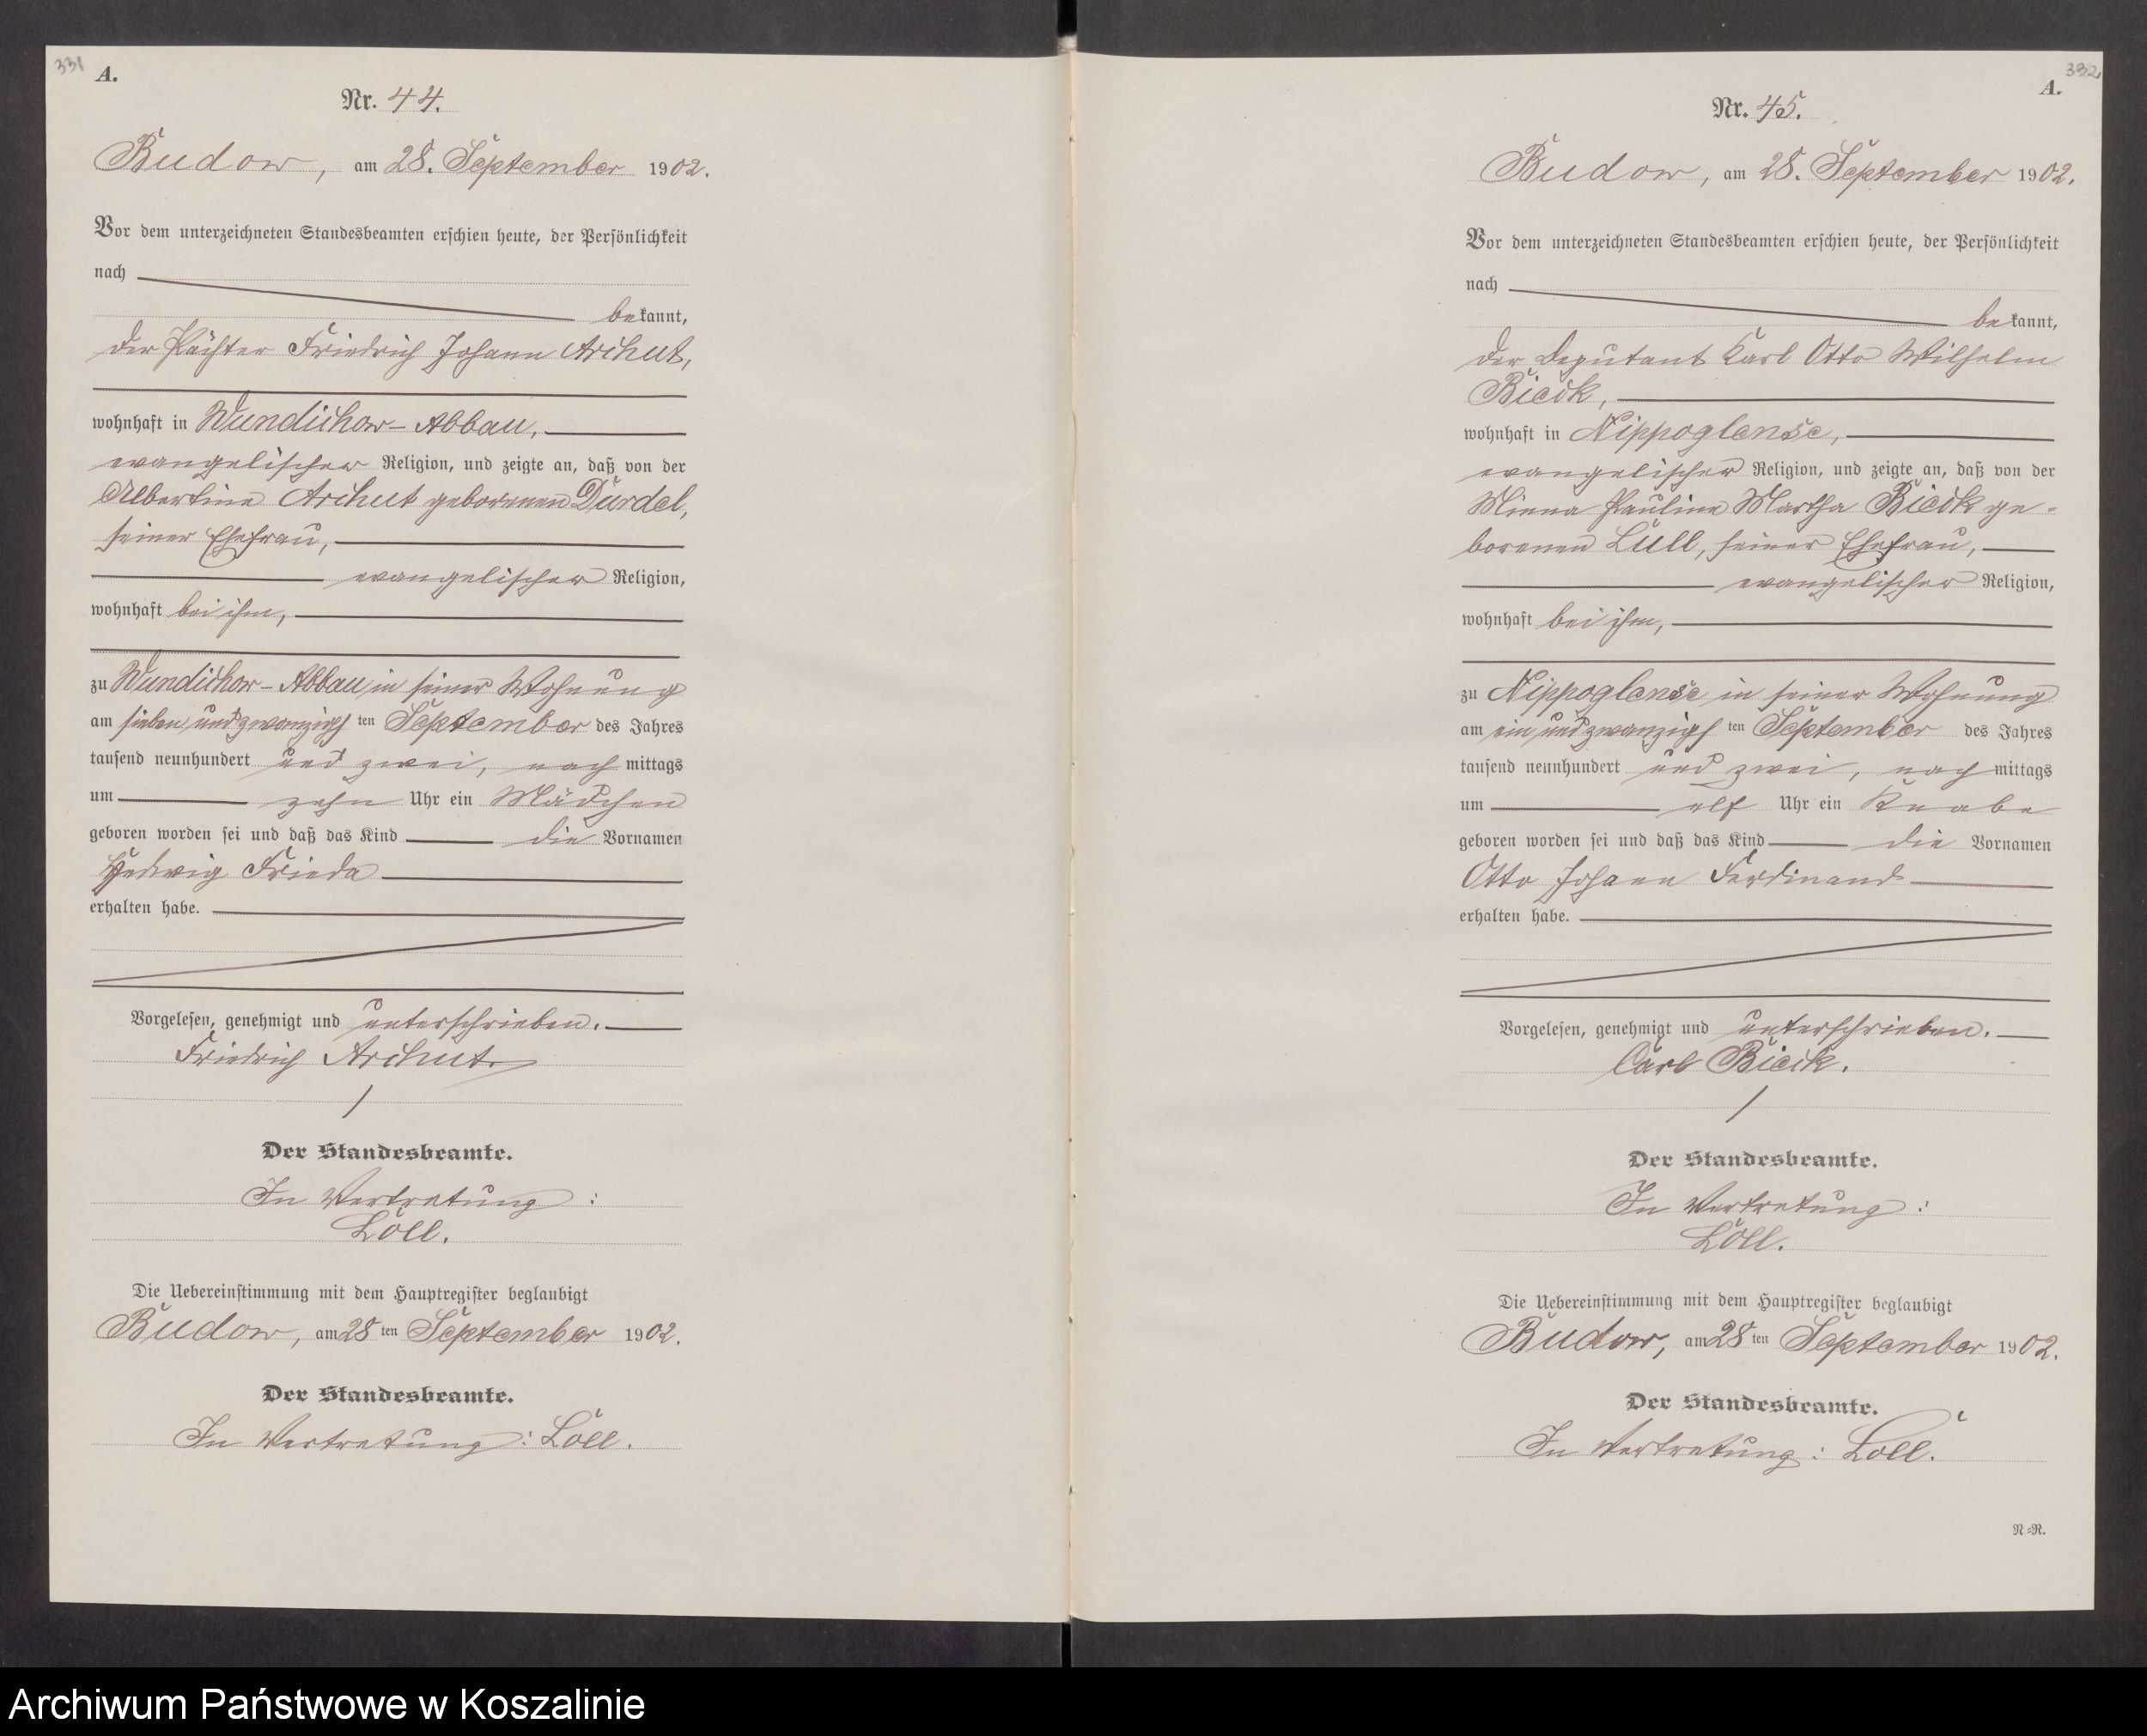 331
A.
Nr. 44.
Budow, am 28. September 1902.
Vor dem unterzeichneten Standesbeamten erschien heute, der Persönlichkeit
nach
bekannt,
der Pächter Friedrich Johann Archut,
wohnhaft in Wundichow-Abbau,
evangelischer Religion, und zeigte an, daß von der
Albertine Archut geborenen Durdel,
seiner Ehefrau,
evangelischer Religion,
wohnhaft bei ihm,
zu Wundichow-Abbau in seiner Wohnung
am sieben und zwanzigsten September des Jahres
tausend neunhundert und zwei, nachmittags
um zehn Uhr ein Mädchen
geboren worden sei und daß das Kind die Vornamen
Hedwig Frieda
erhalten habe.
Vorgelesen, genehmigt und unterschrieben.
Friedrich Archut.
Der Standesbeamte.
In Vertretung:
Löll.
Die Uebereinstimmung mit dem Hauptregister beglaubigt
Budow, am 28ten September 1902.
Der Standesbeamte.
In Vertretung: Löll.
332
A.
Nr. 45.
Budow, am 28. September 1902.
Vor dem unterzeichneten Standesbeamten erschien heute, der Persönlichkeit
nach
bekannt,
der Deputant Karl Otto Wilhelm
wohnhaft in Nippoglense,
evangelischer Religion, und zeigte an, daß von der
Minna Pauline Martha ge-
borenen Lüll, seiner Ehefrau,
evangelischer Religion,
wohnhaft bei ihm,
zu Nippoglense in seiner Wohnung
am ein und zwanzigsten September des Jahres
tausend neunhundert und zwei, nachmittags
um elf Uhr ein Knabe
geboren worden sei und daß das Kind die Vornamen
Otto Johann Ferdinand
erhalten habe.
Vorgelesen, genehmigt und unterschrieben.
Carl
Der Standesbeamte.
In Vertretung:
Löll.
Die Uebereinstimmung mit dem Hauptregister beglaubigt
Budow, am 28ten September 1902.
Der Standesbeamte.
In Vertretung: Löll.
N=R.
Archiwum Państwowe w Koszalinie